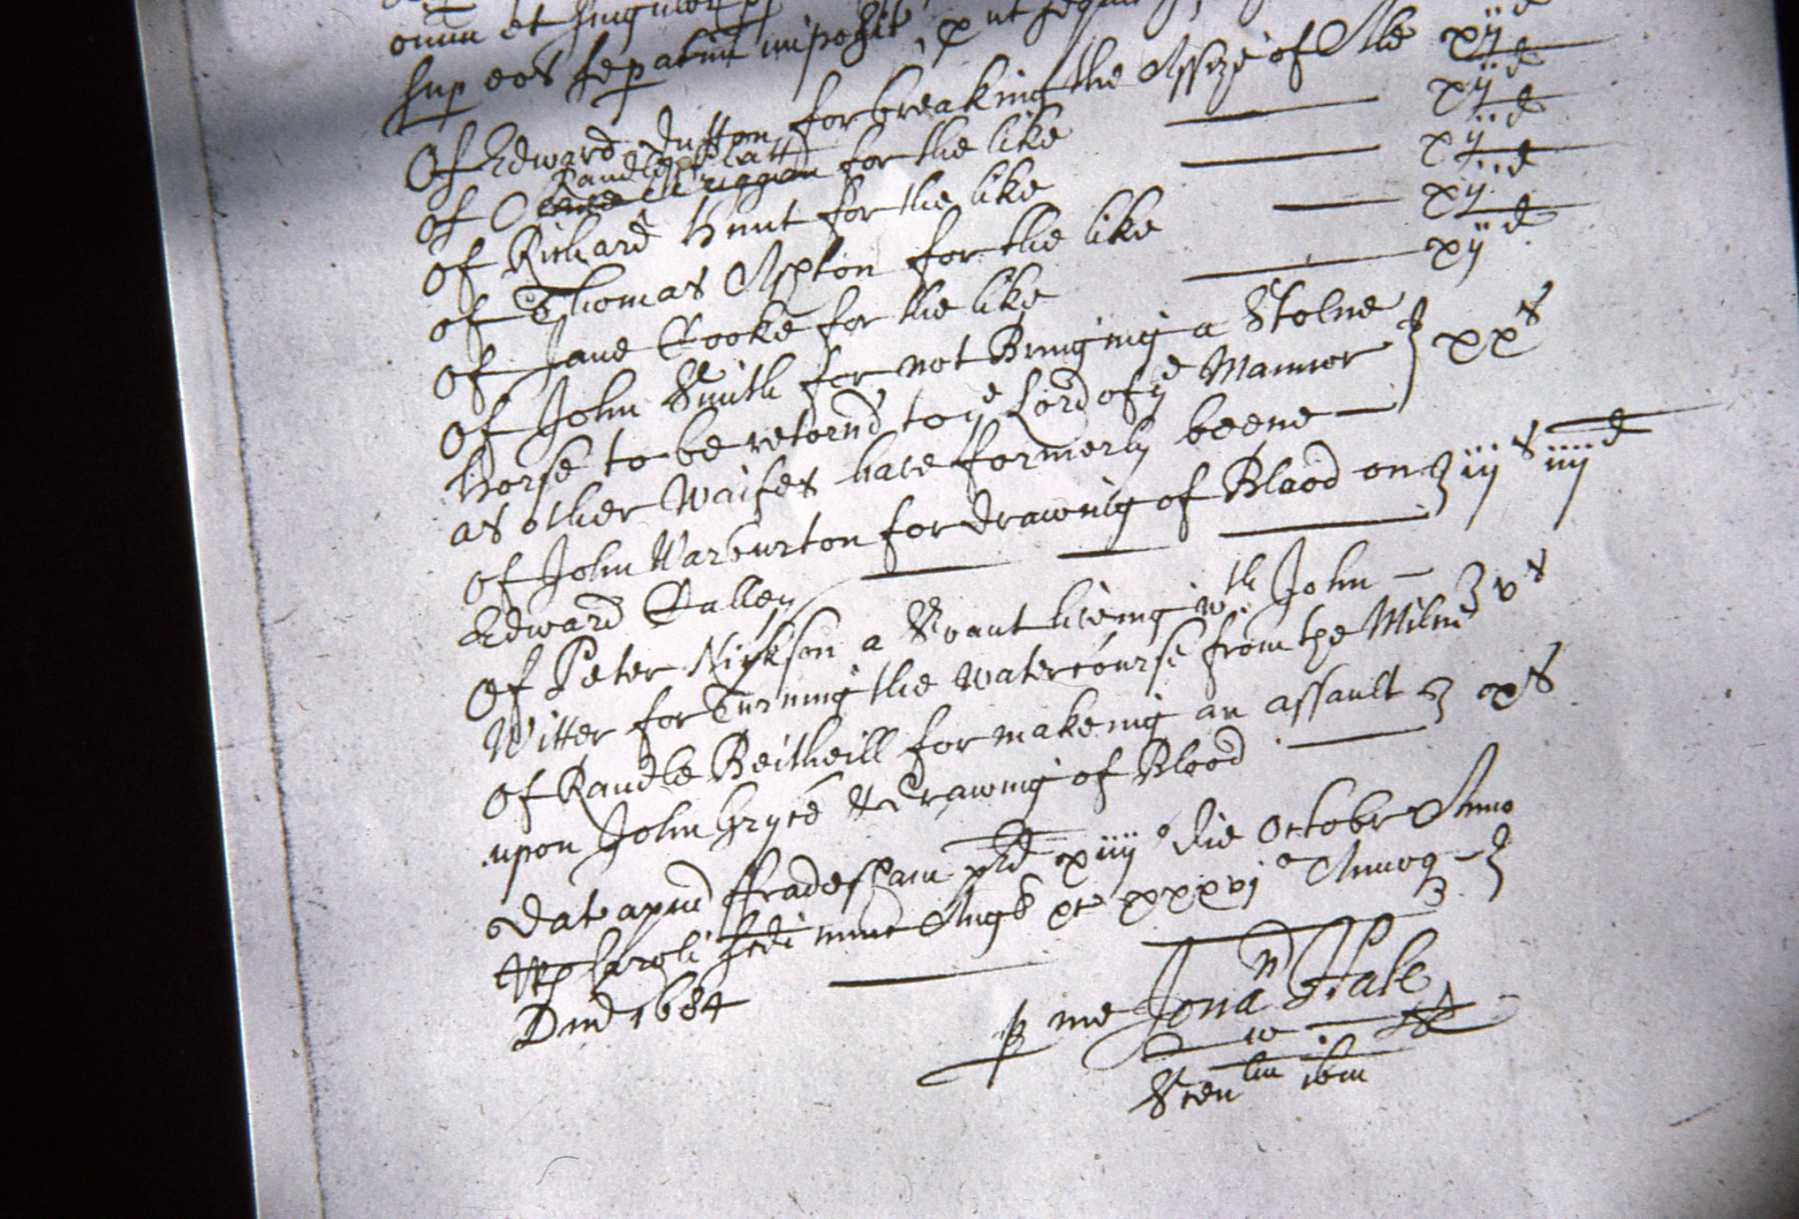 omn et singulor
sup eos sepatim imposit, put sequ
Of Edward Dutton for breaking the Assize of Ale xijd
of Randle Platt for the like xijd
of Richard Hunt for the like xijd
of Thomas Axton for the like xijd
of Jane Cooke for the like xijd
of John Smith for not Bringing a Stolne
horse to be retornd to ye Lord of ye Mannor xxs
as other Waifes have formerly beene
Of John Warburton for drawing of Blood on iijs iiijd
Edward Calley
Of Peter Nickson a Svant liveing wth John vs
Witter for Turning the watercourse from the Milne
Of Randle Beitheill for makeing an assault xs
upon John Gryce & drawing of Blood
Dat apud ffradesham pd xiiijo die Octobr Anno
RRs Caroli scdi nunc Angl &c xxxvjo Annoq
Dmd 1684
p me Jonan Hale
Senlm ibm